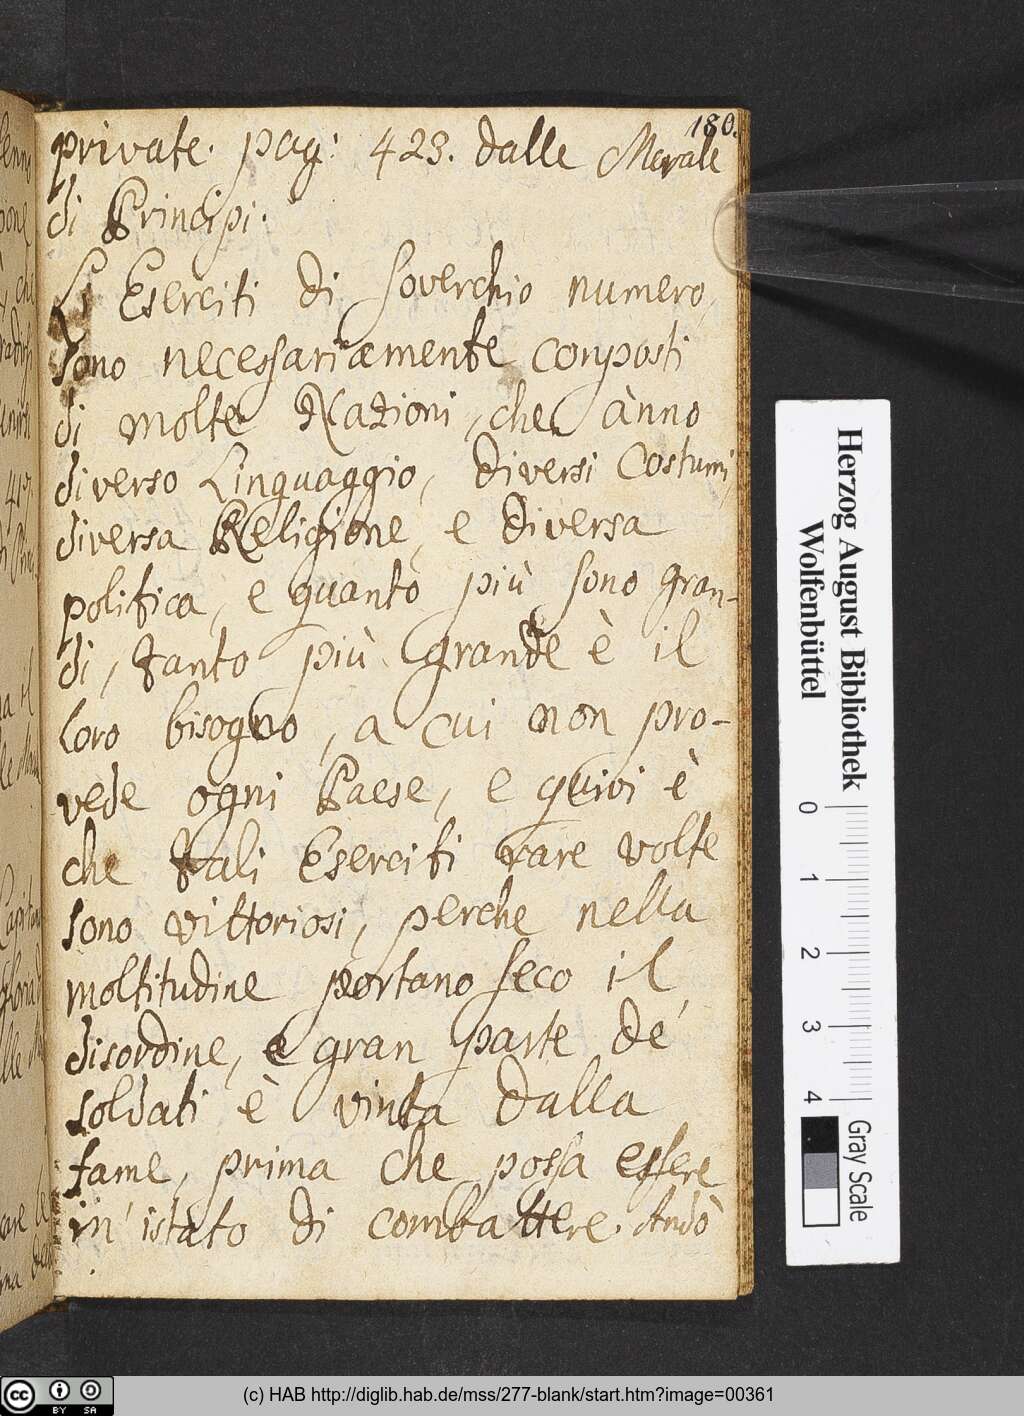 180.
private. pag: 423. dalle Morale
di Principi.
Gl Eserciti di soverchio numero,
sono necessariamente composti
di molte Nazioni, che ànno
diverso Linguaggio, diversi Costumi,
diversa Religione, e diversa
politica, e quanto più sono gran-
di, tanto più grande è il
loro bisogno, a cui non pro-
vede ogni Paese, e quivi è
che tali Eserciti rare volte
sono vittoriosi, perche nella
moltitudine portano seco il
disordine, e gran parte de'
soldati è vinta dalla
fame, prima che possa essere
in istato di combattere. Andò
Herzog August Bibliothek
Wolfenbüttel
0 1 2 3 4
Gray Scale
cc BY SA
(c) HAB http://diglib.hab.de/mss/277-blank/start.htm?image=00361